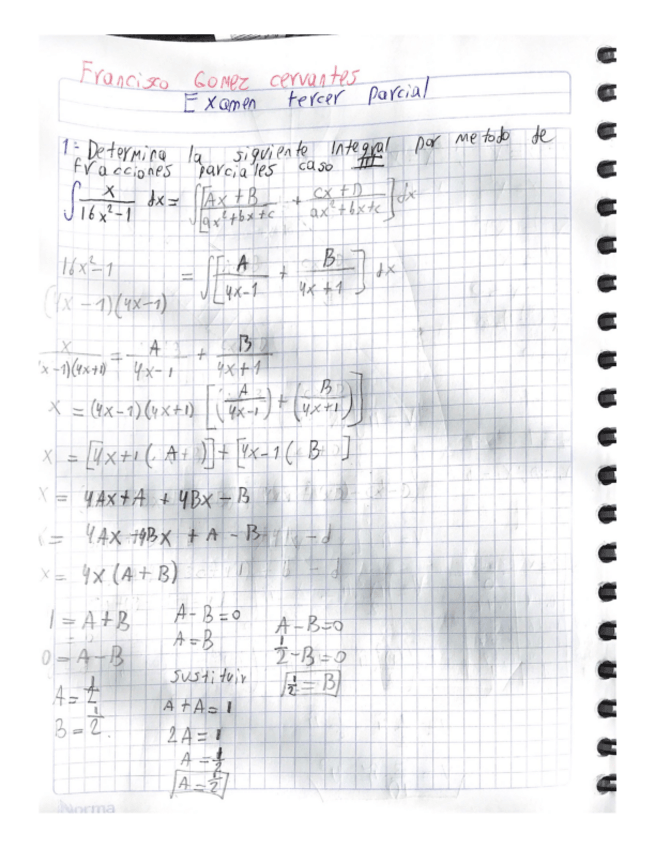 Francisco Gomez cervantes
Examen tercer Parcial
1.- Determina la siguiente Integral por metodo de
fracciones parciales caso III
∫ x/(16x²-1) dx = ∫[(Ax+B)/(ax²+bx+c) + (cx+D)/(ax²+bx+c)] dx
16x²-1 = ∫[A/(4x-1) + B/(4x+1)] dx
(4x-1)(4x-1)
x/(x-1)(4x+1) = A/(4x-1) + B/(4x+1)
x = (4x-1)(4x+1) [(A/(4x-1)) + (B/(4x+1))]
x = [4x+1( A+ )] + [4x-1( B ]
x = 4Ax+A + 4Bx-B
= 4Ax+4Bx + A-B
x = 4x(A+B)
1 = A+B A-B=0 A-B=0
0 = A-B A=B 1/2-B=0
A=1/2 sustituir 1/2=B
B=1/2. A+A=1
2A=1
A=1/2
A=1/2
Norma